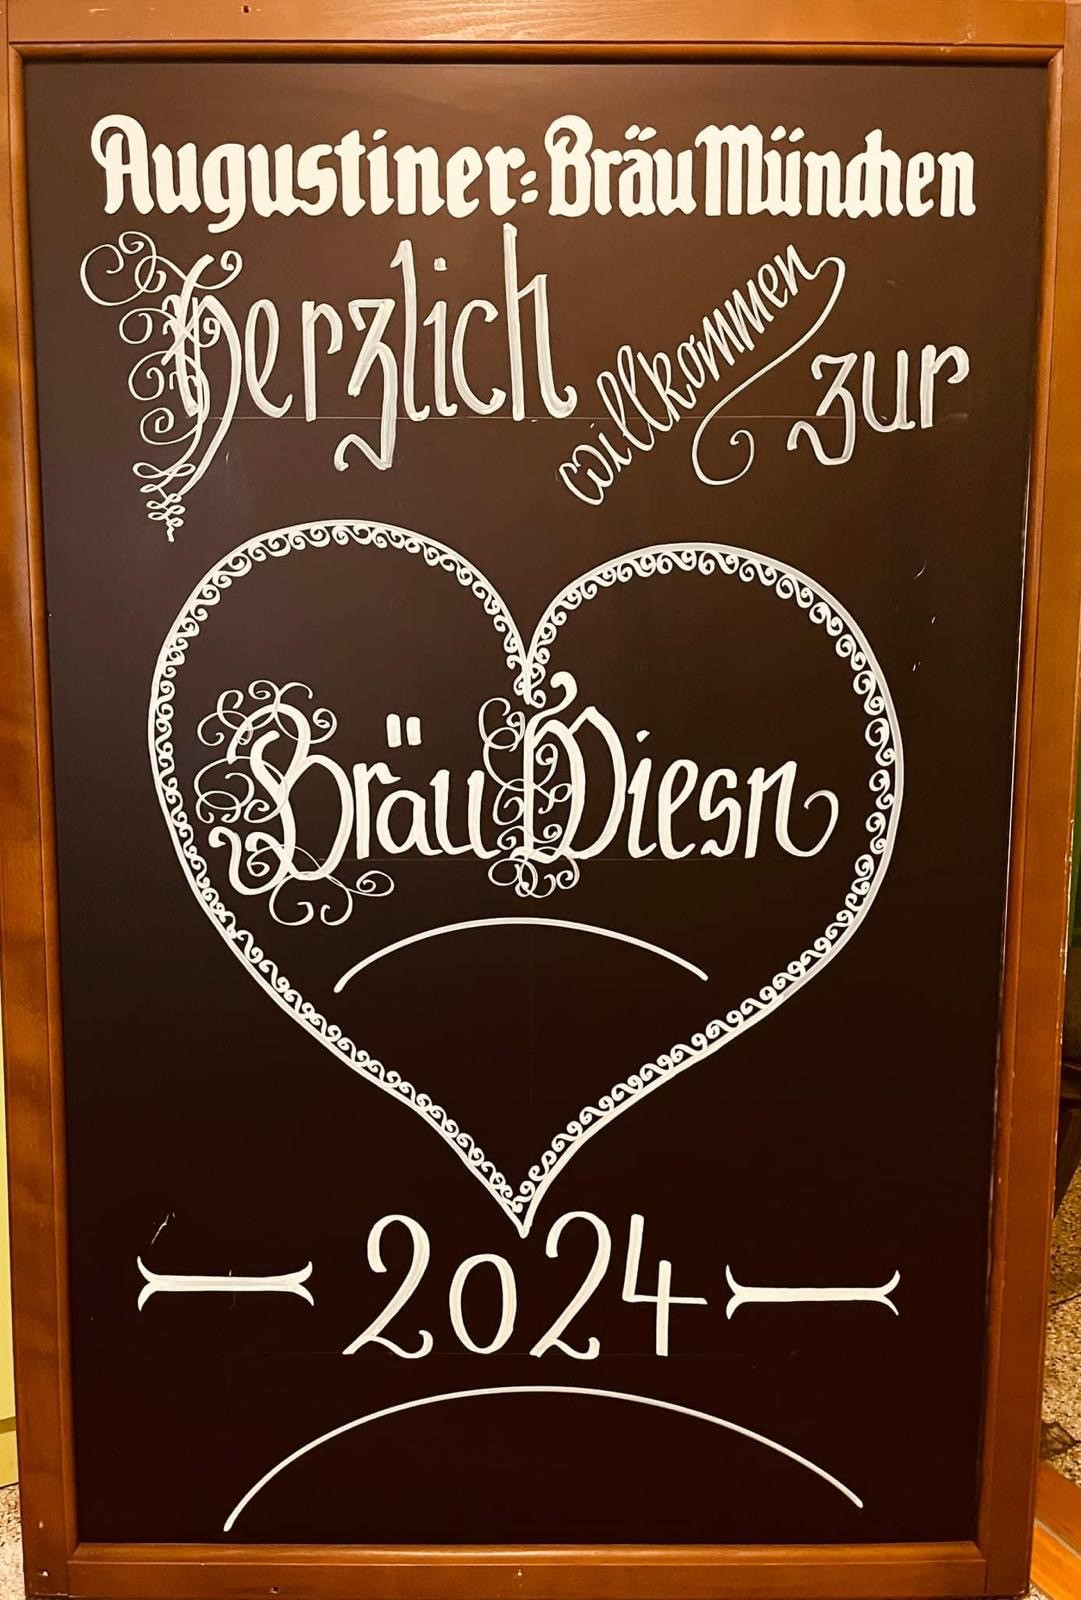 Augustiner=Bräu München
Herzlich willkommen zur
Bräu Wiesn
2024